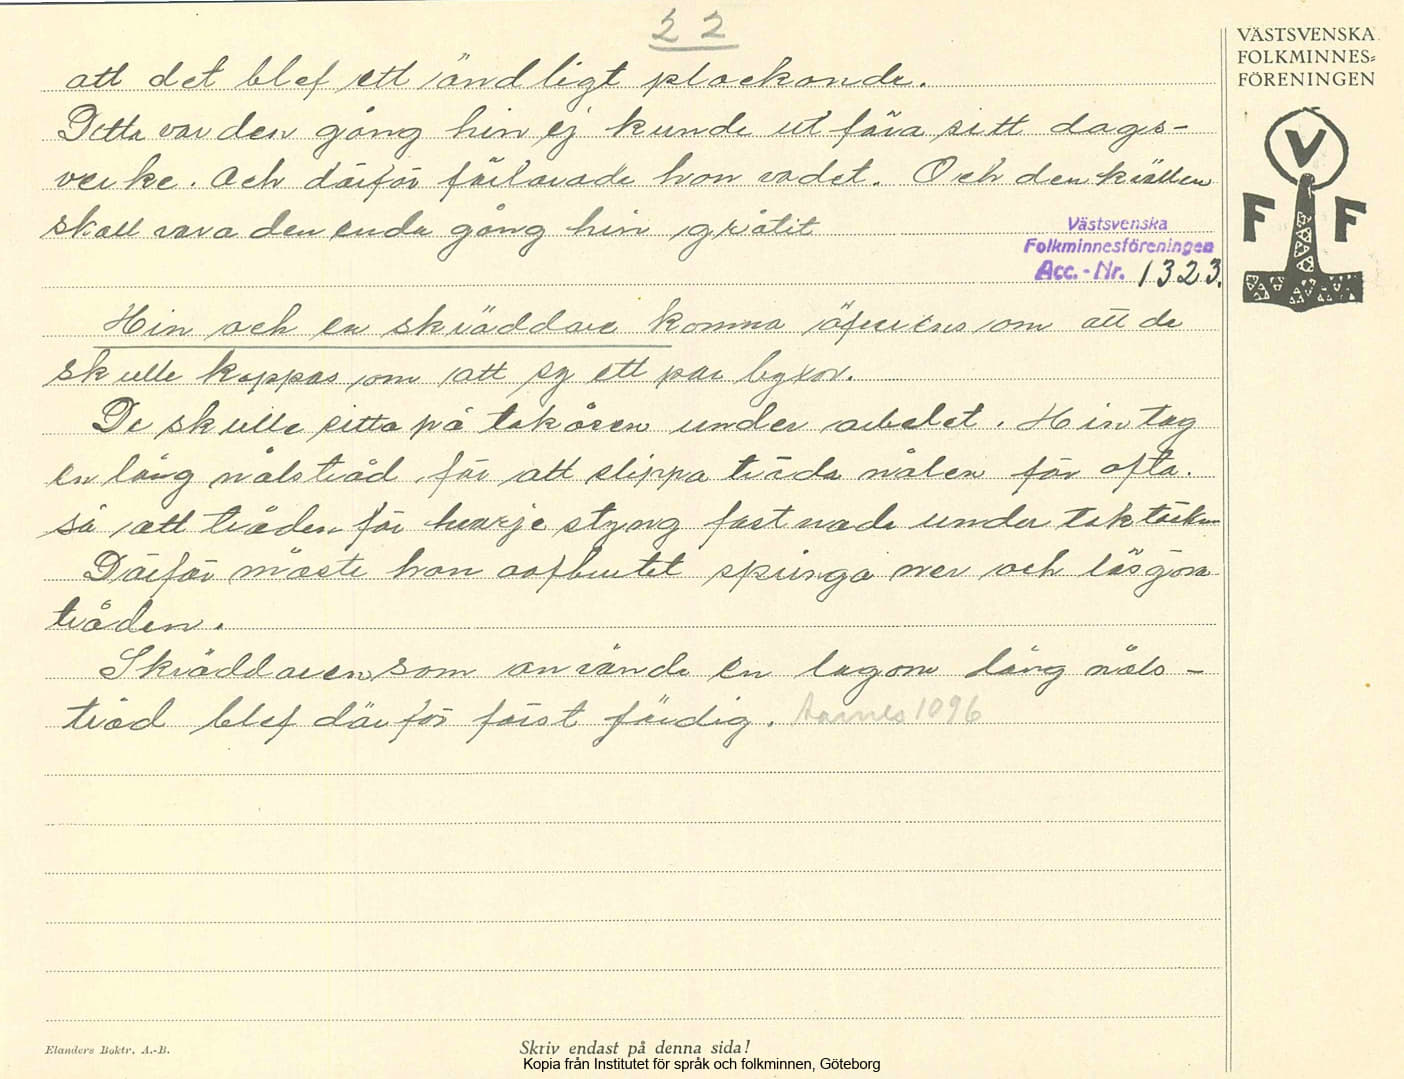 22
VÄSTSVENSKA
FOLKMINNES=
FÖRENINGEN
V
F F
att det blef ett ändligt plockande.
Detta var den gång hin ej kunde ut föra sitt dags-
verke. Och därför förlorade han vadet. Och den kvällen
skall vara den enda gång hin gråtit
Västsvenska
Folkminnesföreningen
Acc.-Nr. 1323.
Hin och en skräddare komma öfverens om att de
skulle kappas om att sy ett par byxor.
De skulle sitta på takåsen under arbetet. Hin tog
en lång nålstråd för att slippa träda nålen för ofta.
så att tråden för hvarje styng fastnade under taktäcken
Därför måste han oafbrutet springa ner och lösgöra
tråden.
Skräddaren som använde en lagom lång nåls-
tråd blef därför först färdig. Aarnes 1096
Elanders Boktr. A.-B.
Skriv endast på denna sida!
Kopia från Institutet för språk och folkminnen, Göteborg